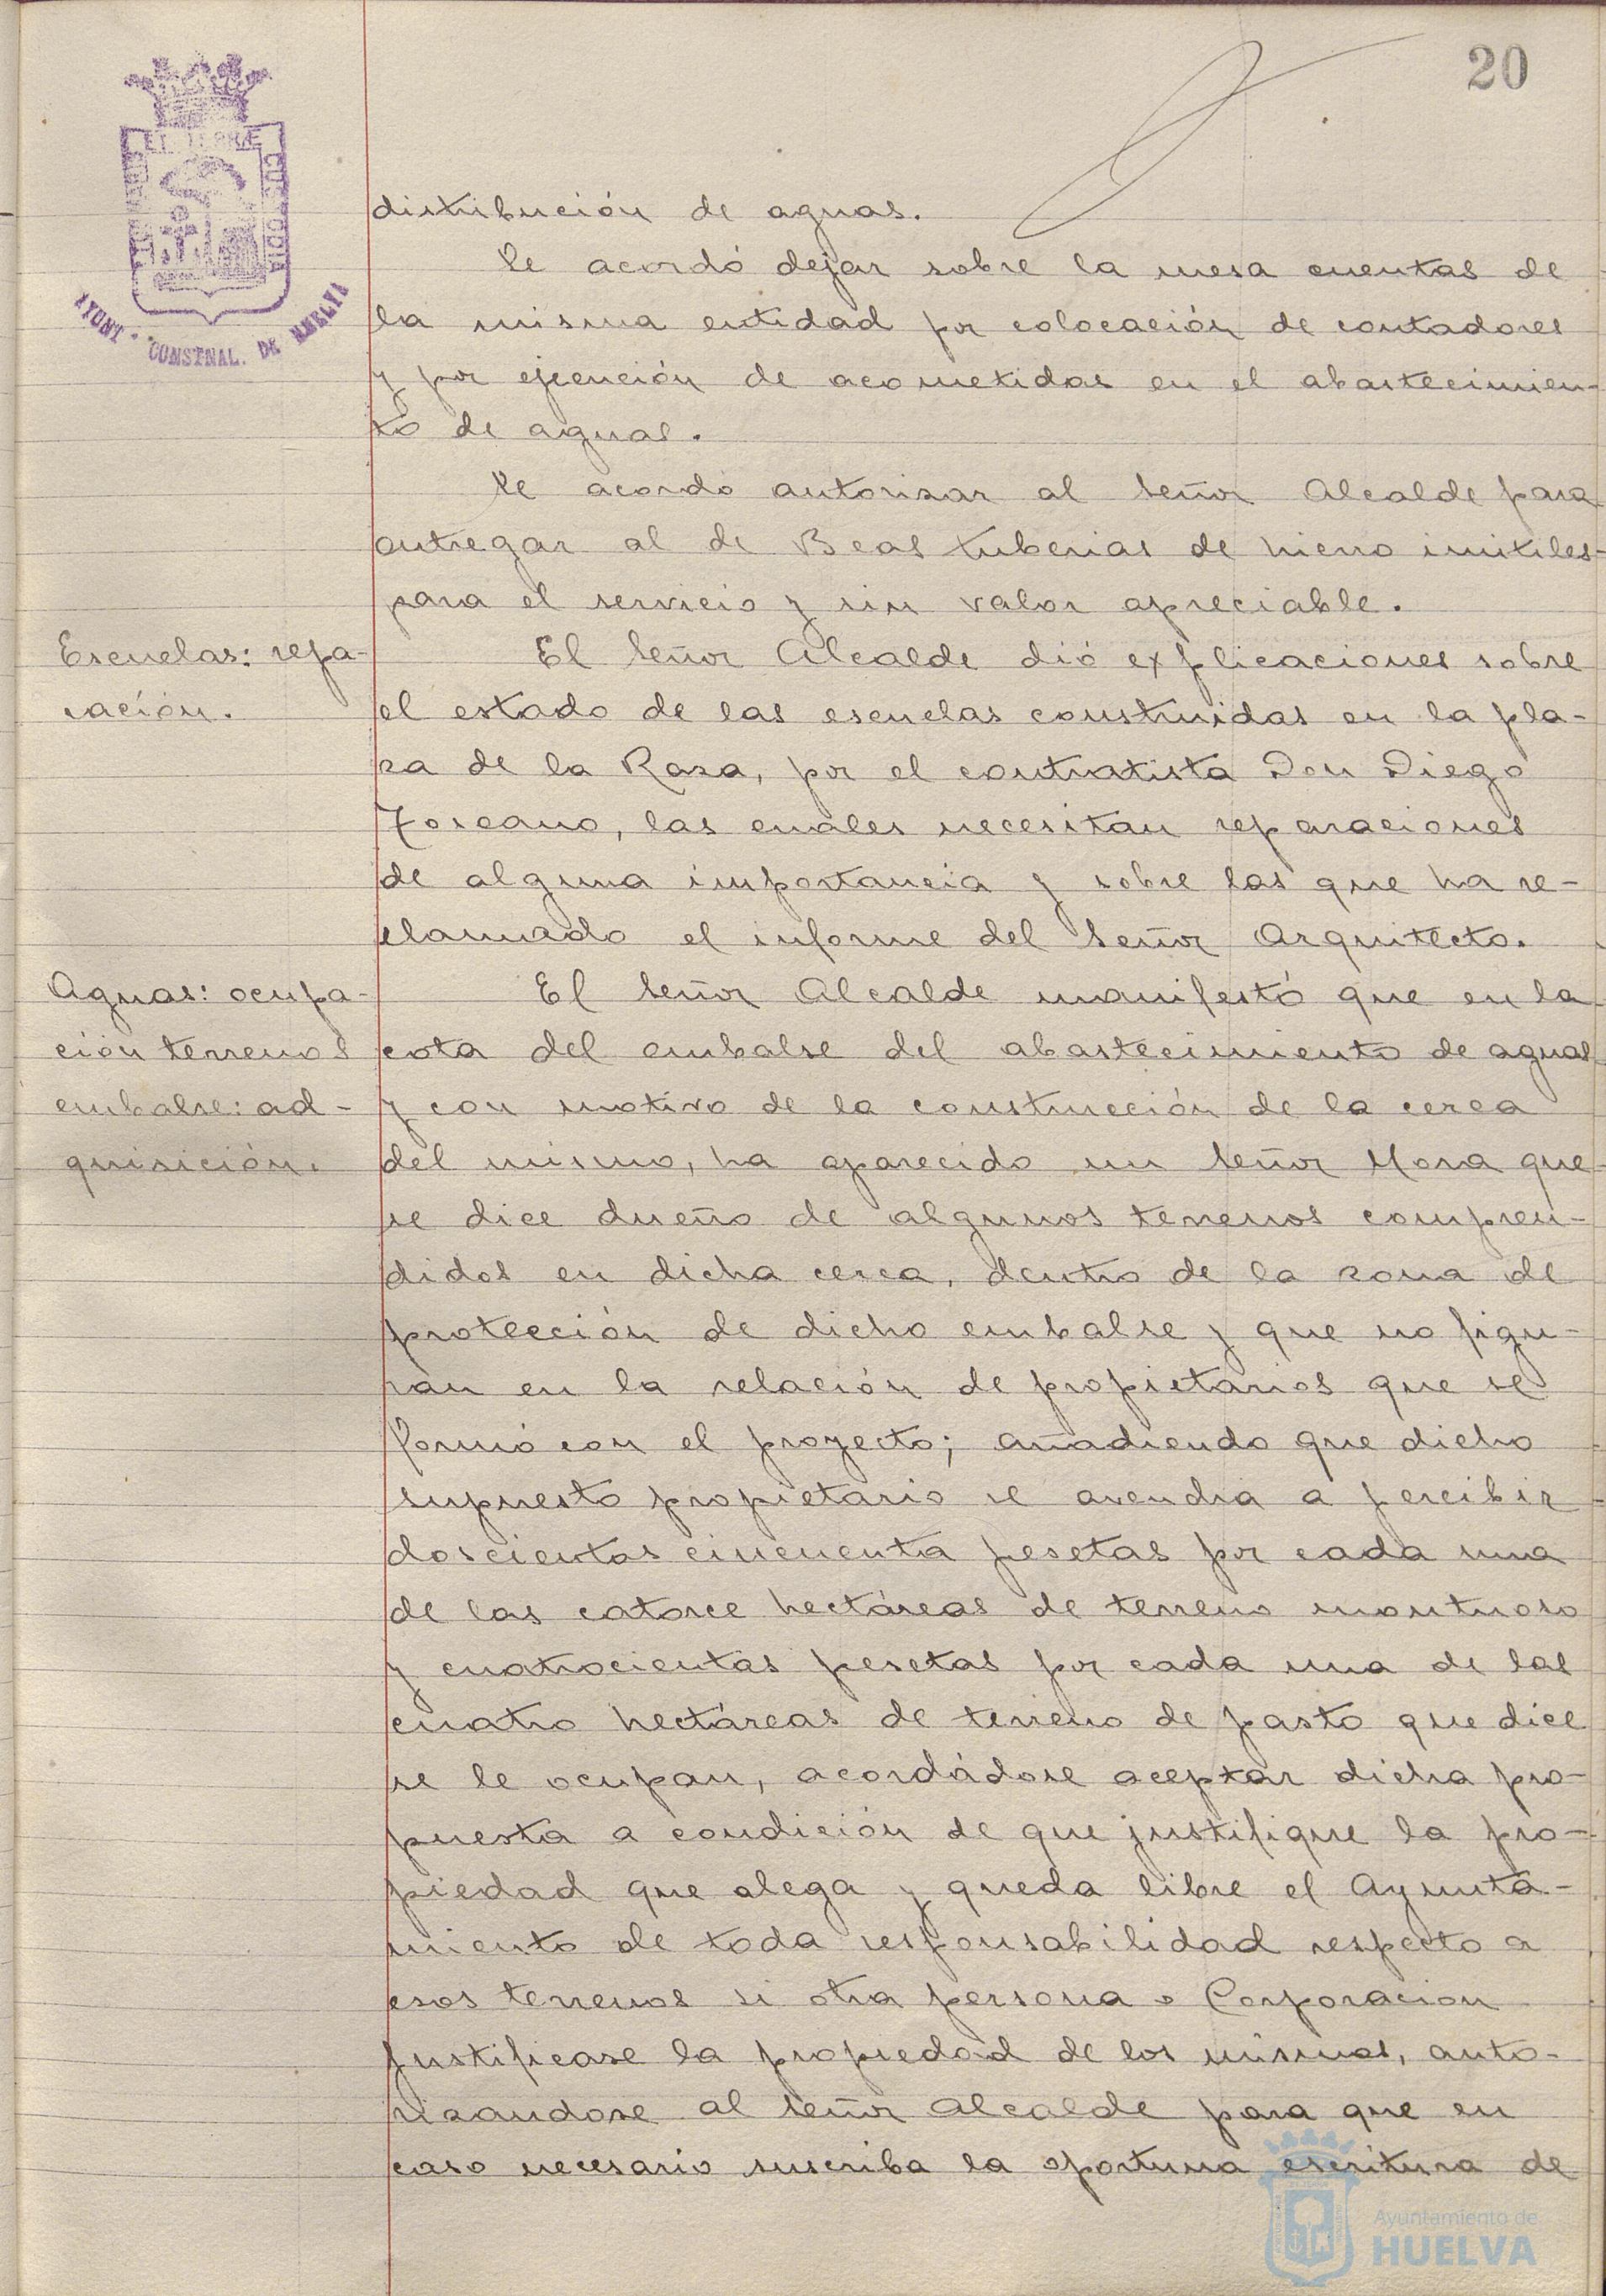 20
distribución de aguas.
Se acordó dejar sobre la mesa cuentas de
la misma entidad por colocación de contadores
y por ejecución de acometidas en el abastecimien-
to de aguas.
Se acordo autorizar al Señor Alcalde para
entregar al de Beas tuberias de hierro inútiles
para el servicio y sin valor apreciable.
Escuelas: repa-
ración.
El Señor Alcalde dió explicaciones sobre
el estado de las escuelas construidas en la pla-
za de la Raza, por el contratista Don Diego
Toscano, las cuales necesitan reparaciones
de alguna importancia y sobre las que ha re-
clamado el informe del Señor Arquitecto.
Aguas: ocupa-
ción terrenos
embalse: ad-
quisición.
El Señor Alcalde manifestó que en la
cota del embalse del abastecimiento de aguas
y con motivo de la construcción de la cerca
del mismo, ha aparecido un Señor Mora que
se dice dueño de algunos terrenos compren-
didos en dicha cerca, dentro de la zona de
protección de dicho embalse y que no figu-
ran en la relación de propietarios que se
formó con el proyecto; añadiendo que dicho
supuesto propietario se avendria a percibir
doscientas cincuenta pesetas por cada una
de las catorce hectáreas de terreno montuoso
y cuatrocientas pesetas por cada una de las
cuatro hectáreas de terreno de pasto que dice
se le ocupan, acordádose aceptar dicha pro-
puesta a condición de que justifique la pro-
piedad que alega y queda libre el Ayunta-
miento de toda responsabilidad respecto a
esos terrenos si otra persona o Corporacion
justificase la propiedad de los mismos, auto-
rizandose al Señor Alcalde para que en
caso necesario suscriba la oportuna escritura de
AYUNT. CONSTNAL. DE HUELVA
Ayuntamiento de
HUELVA